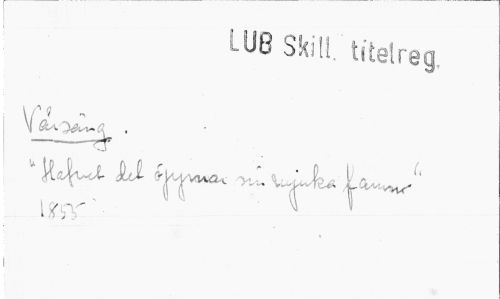 LUB Skill. titelreg.
Vårsång.
"Hafvet det öppnar sin mjuka famn"
1855